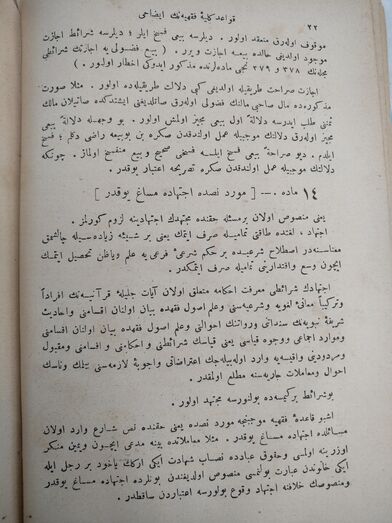 ٢٢ قواعد كليهٔ فقهيه‌نك ايضاحى
موقوف اوله‌رق منعقد اولور . ديلرسه بيعى فسخ ايلر ؛ ديلرسه شرائط اجازت
موجود اولدينى حالده بيعه اجازت ويرر . ( بيع فضولى‌يه اجازتك شرائطى
مجله‌نك ٣٧٨ و ٣٧٩ نجى ماده‌لرنده مذكور ايدوكى اخطار اولنور . )
اجازت صراحت طريقيله اولدينى كبى دلالت طريقيله‌ده اولور . مثلا صورت
مذكوره‌ده مال صاحبى مالنك فضولى اوله‌رق صاتلدينى ايشتدكده صاتيلان مالك
ثمننى طلب ايدرسه دلالةً اول بيعى مجيز اولمش اولور . بو وجهله دلالةً بيعى
مجيز اوله‌رق دلالتك موجبيله عمل اولندقدن صكره بن بو بيعه راضى دكلم ؛ فسخ
ايلدم . ديو صراحةً بيعى فسخ ايلسه فسخى صحيح و بيع منفسخ اولماز . چونكه
دلالتك موجبيله عمل اولندقدن صكره تصريحه اعتبار يوقدر .
١٤ ماده . — [ مورد نصده اجتهاده مساغ يوقدر ]
يعنى منصوص اولان بر مسئله حقنده مجتهدك اجتهادينه لزوم كورلمز .
اجتهاد ، لغتده طاقتى تماميله صرف ايتمك يعنى بر شيئه زياده‌سيله چالشمق
معناسنه‌در اصطلاح شرعيده بر حكم شرعئ فرعى‌يه علم و ياظن تحصيل ايتمك
ايچون وسع و اقتدارينى تماميله صرف ايتمكدر .
اجتهادك شرائطى معرفت احكامه متعلق اولان آيات جليلهٔ قرآنيه‌نك افراداً
و تركيباً معانئ لغويه و شرعيه‌سنى و علم اصول فقهده بيان اولنان اقسامنى و احاديث
شريفهٔ نبويه‌نك سنداتنى و رواتنك احوالنى و علم اصول فقهده بيان اولنان اقسامنى
و موارد اجماعى و وجوه قياسى يعنى قياسك شرائطنى و احكامنى و اقسامنى و مقبول
و مردودينى و اقيسه‌يه وارد اوله‌بيله‌جك اعتراضاتى و اجوبهٔ لازمه‌سنى بيلمك و ناسك
احوال و معاملات جاريه‌سنه مطلع اولمقدر .
بو شرائط بر كيمسه‌ده بولنورسه مجتهد اولور .
اشبو قاعدهٔ فقهيه موجبنجه مورد نصده يعنى حقنده نص شارع وارد اولان
مسائلده اجتهاده مساغ يوقدر . مثلا معاملاتده بينه مدعى ايچون و يمين منكر
اوزرينه اولمسى و حقوق عبادده نصاب شهادت ايكى اركك ياخود بر رجل ايله
ايكى خاتوندن عبارت بولنمسى منصوص اولديغندن بونلرده اجتهاده مساغ يوقدر
و منصوصك خلافنه اجتهاد وقوع بولورسه اعتباردن ساقطدر .